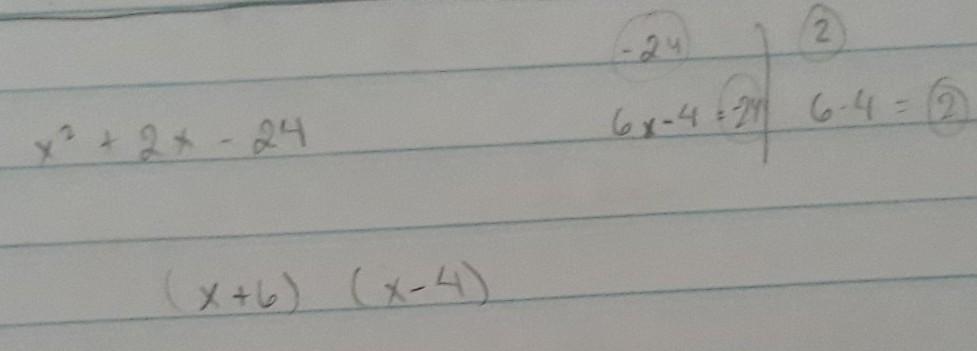 -24 | 2
x² + 2x - 24
6x-4 = -24 | 6-4 = 2
(x+6) (x-4)